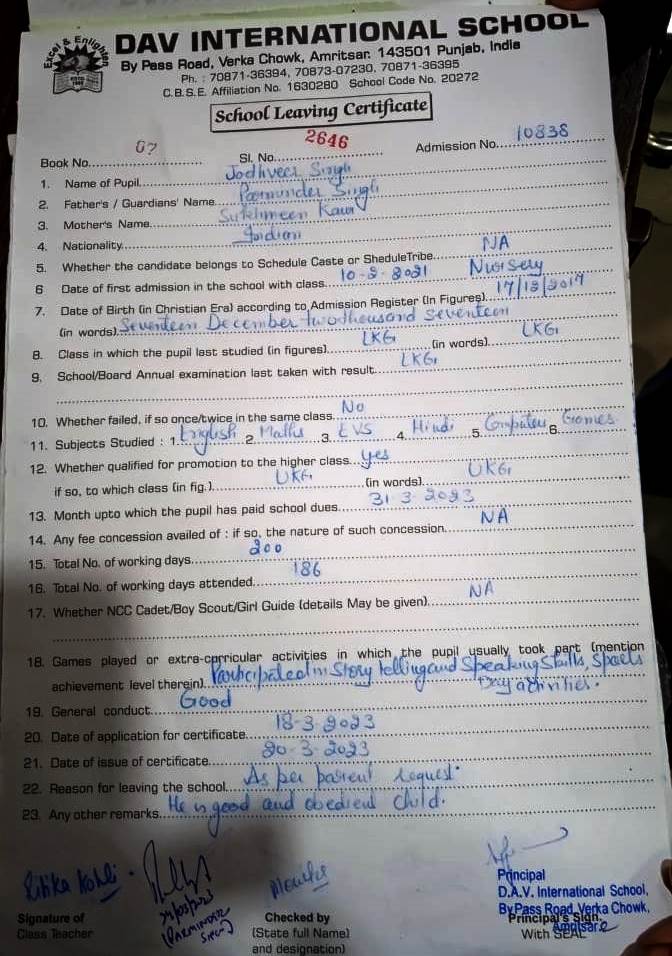 Excel & Enlighten
DAV INTERNATIONAL SCHOOL
By Pass Road, Verka Chowk, Amritsar. 143501 Punjab, India
Ph. : 70871-36394, 70873-07230, 70871-36395
C.B.S.E. Affiliation No. 1630280 School Code No. 20272
School Leaving Certificate
Book No. 07 Sl. No. 2646 Admission No. 10838
1. Name of Pupil Jodhveer Singh
2. Father's / Guardians' Name Parminder Singh
3. Mother's Name Sukhmeen Kaur
4. Nationality Indian
5. Whether the candidate belongs to Schedule Caste or SheduleTribe NA
6 Date of first admission in the school with class 10-2-2021 Nursery
7. Date of Birth (in Christian Era) according to Admission Register (In Figures) 17/12/2017
(in words) Seventeen December twothousand seventeen
8. Class in which the pupil last studied (in figures) LKG (in words) LKG
9. School/Board Annual examination last taken with result LKG
10. Whether failed, if so once/twice in the same class No
11. Subjects Studied : 1. English 2. Maths 3. EVS 4. Hindi 5. Computer 6. Games
12. Whether qualified for promotion to the higher class yes
if so, to which class (in fig.) UKG (in words) UKG
13. Month upto which the pupil has paid school dues 31-3-2023
14. Any fee concession availed of : if so, the nature of such concession NA
15. Total No. of working days 200
16. Total No. of working days attended 186
17. Whether NCC Cadet/Boy Scout/Girl Guide (details May be given) NA
18. Games played or extra-corricular activities in which the pupil usually took part (mention
achievement level therein) Participated in Story telling and Speaking Skills, Sports
Day activities.
19. General conduct Good
20. Date of application for certificate 18-3-2023
21. Date of issue of certificate 20-3-2023
22. Reason for leaving the school As per parent request.
23. Any other remarks He is good and obedient child.
Ritika Kohli
(PARMINDER SINGH)
Principal
D.A.V. International School,
By Pass Road, Verka Chowk,
Amritsar
Signature of Class Teacher
Checked by
(State full Name)
and designation)
Principal's Sign.
With SEAL